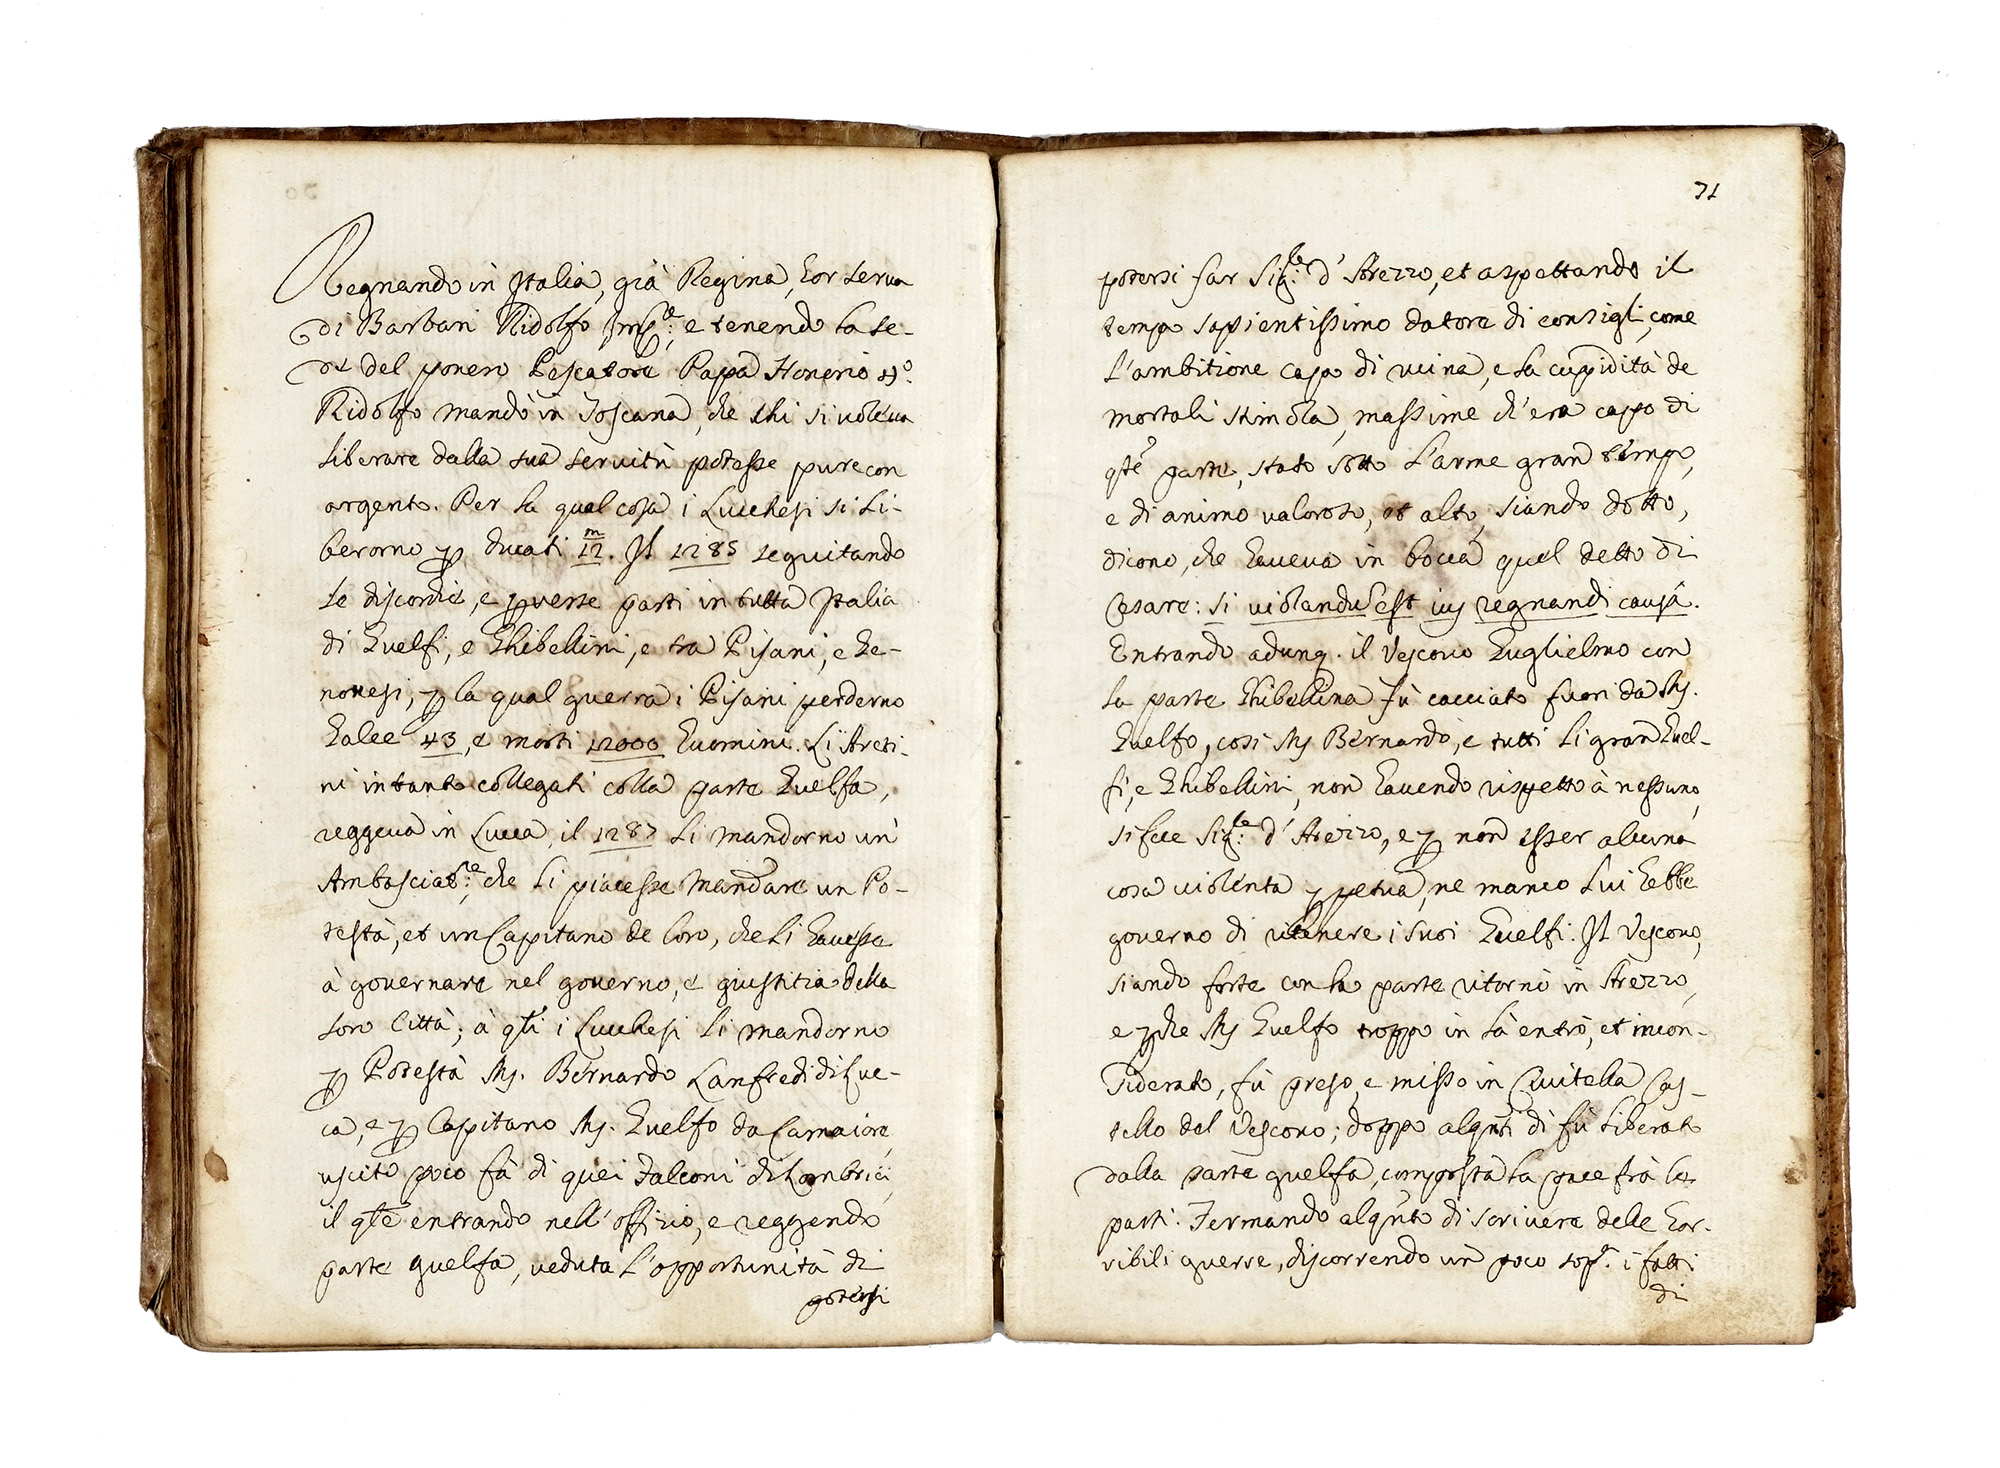 Regnando in Italia, già Regina, hor serua
di Barbari Ridolfo Imp.re: e tenendo la se-
de del povero Pescatore Papa Honorio 4º.
Ridolfo mandò in Toscana, che chi si voleua
liberare dalla sua servitù potesse pure con
argento. Per la qual cosa i Lucchesi si li-
berorno p ducati 12.m Il 1285 seguitando
le discordie, e pverse parti in tutta Italia
di Guelfi, e Ghibellini, e tra Pisani, e Ge-
novesi, p la qual guerra i Pisani perderno
Galee 43, e morti 12000 huomini. Li Areti-
ni intanto collegati colla parte Guelfa,
reggeua in Lucca, il 1287 li mandorno un
Ambasciat.re: che li piacesse mandare un Po-
testà, et un Capitano de loro, che li hauesse
à governare nel governo, e giustitia della
loro Città; à qti i Lucchesi li mandorno
p Potestà Mj. Bernardo Lanfredi di Luc-
ca, e p Capitano Mj. Guelfo da Camaiore,
uscito poco fà di quei Falconi di Lombrici,
il qte entrando nell'offizio, e reggendo
parte guelfa, veduta l'opportunità di
potersi
71
potersi far Sig.re: d'Arezzo, et aspettando il
tempo sapientissimo datore di consigli, come
l'ambitione capo di ruina, e la cupidità de
mortali stimola, massime ch'era capo di
qte parte, stato sotto l'arme gran tempo,
e di animo valoroso, et alto, siando dotto,
dicono, che haueua in bocca quel detto di
Cesare: si violandus est ius regnandi causâ.
Entrando adunq. il Vescovo Guglielmo con
la parte Ghibellina fù cacciato fuori da Mj.
Guelfo, così Mj Bernardo, e tutti li gran Guel-
fi, e Ghibellini, non hauendo rispetto à nessuno,
si fece Sig.re: d'Arezzo, e p non esser alcuna
cosa violenta ppetua, ne manco lui hebbe
governo di ritenere i suoi Guelfi. Il Vescovo,
siando forte con la parte ritornò in Arezzo,
e pche Mj Guelfo troppo in là entrò, et incon-
siderato, fù preso, e misso in Civitella Cas-
tello del Vescovo; doppo alqnti dì fù liberato
dalla parte guelfa, composta la pace frà le
parti. Fermando alqnto di scrivere delle hor-
ribili guerre, discorrendo un poco sop.a i fatti
di